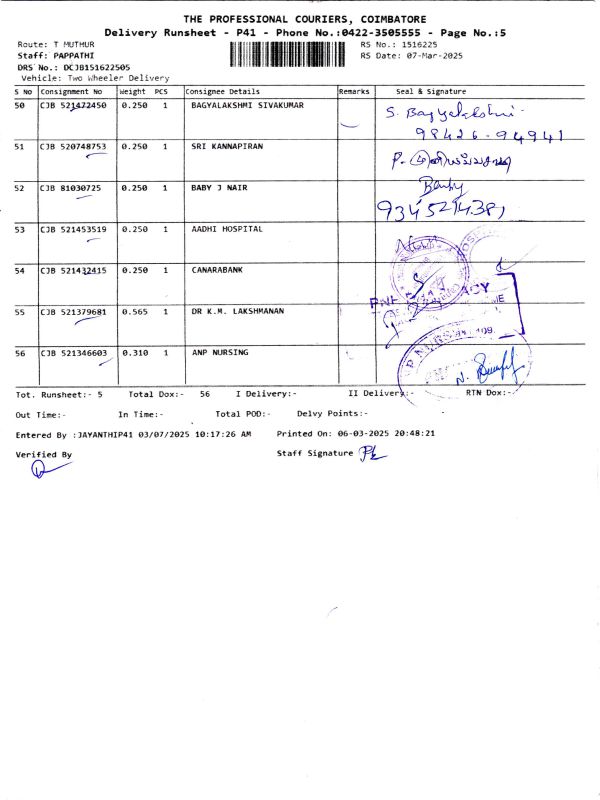 THE PROFESSIONAL COURIERS, COIMBATORE
Delivery Runsheet - P41 - Phone No.:0422-3505555 - Page No.:5
Route: T MUTHUR
RS No.: 1516225
Staff: PAPPATHI
RS Date: 07-Mar-2025
DRS No.: DCJB151622505
Vehicle: Two Wheeler Delivery
S No Consignment No Weight PCS Consignee Details Remarks Seal & Signature
50 CJB 521472450 0.250 1 BAGYALAKSHMI SIVAKUMAR S. Bagyalakshmi
98426-94941
51 CJB 520748753 0.250 1 SRI KANNAPIRAN
52 CJB 81030725 0.250 1 BABY J NAIR Baby
9345214381
53 CJB 521453519 0.250 1 AADHI HOSPITAL
54 CJB 521432415 0.250 1 CANARABANK
55 CJB 521379681 0.565 1 DR K.M. LAKSHMANAN
56 CJB 521346603 0.310 1 ANP NURSING
Tot. Runsheet:- 5 Total Dox:- 56 I Delivery:- II Delivery:- RTN Dox:-
Out Time:- In Time:- Total POD:- Delvy Points:-
Entered By :JAYANTHIP41 03/07/2025 10:17:26 AM Printed On: 06-03-2025 20:48:21
Verified By Staff Signature